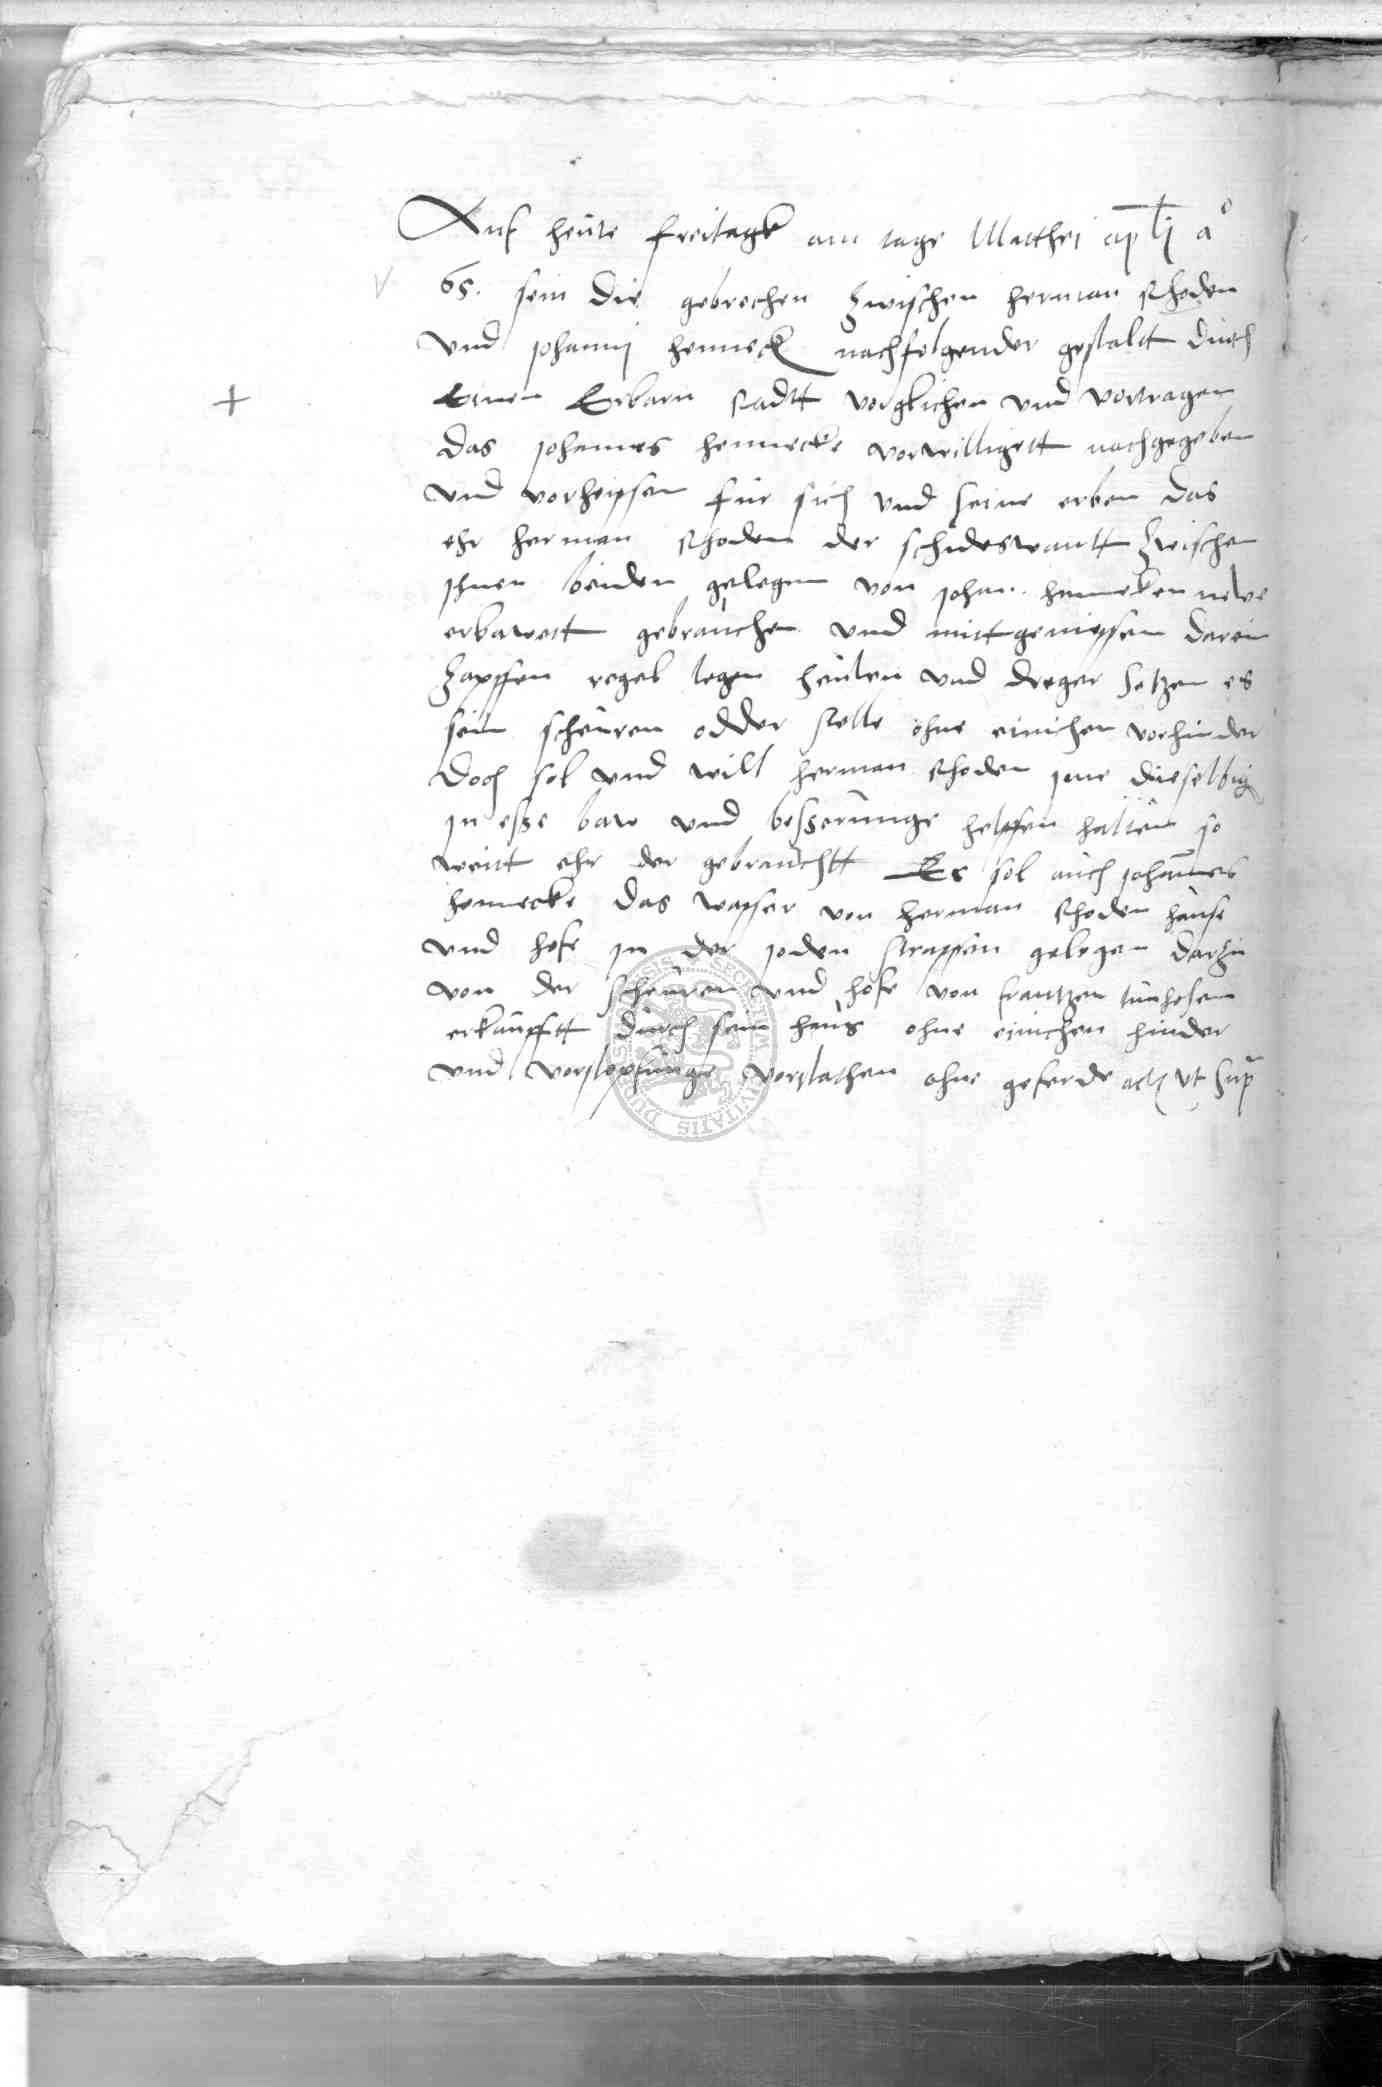 Auf heute freitagk am tage Matthei apłi a°
65. sein die gebrechen zwischen herman Rhoden
und Johanni henneck nachfolgender gestaltt durch
Einen Erbarn Radtt vorglichen und vortragen
das Johannes hennecke vorwilligett nachgegeben
und vorheissen fur sich und seine erben das
ehr herman Rhoden der schideswantt zwischen
ihnen beiden gelegen von Johan. henneken newe
erbawett gebrauchen und mittgeniessen darein
zapffen regel legen seulen und dreger setzen es
sein scheuren odder stelle ohne einichen vorhinder
Doch sol und will herman Rhoden ime dieselbig
in esse baw und besserunge helffen halten so
weitt ehr der gebrauchtt Es sol auch Johannes
hennecke das wasser von herman Rhoden hause
und hofe in der Joden strassen gelegen darzu
von der scheuren und hofe von frantzen
erkaufftt durch sein haus ohne einichen hinder
und vorstopfunge ohne geferde act ut supr
SECRETUM CIVITATIS DUD